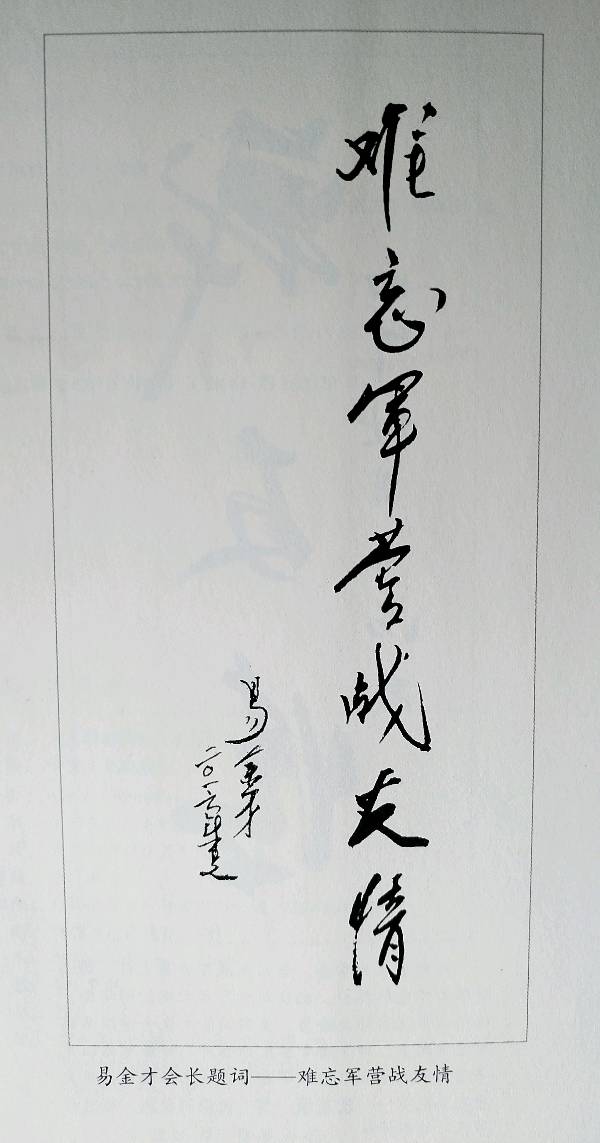 难忘军营战友情
易金才
二〇一六年夏
易金才会长题词——难忘军营战友情